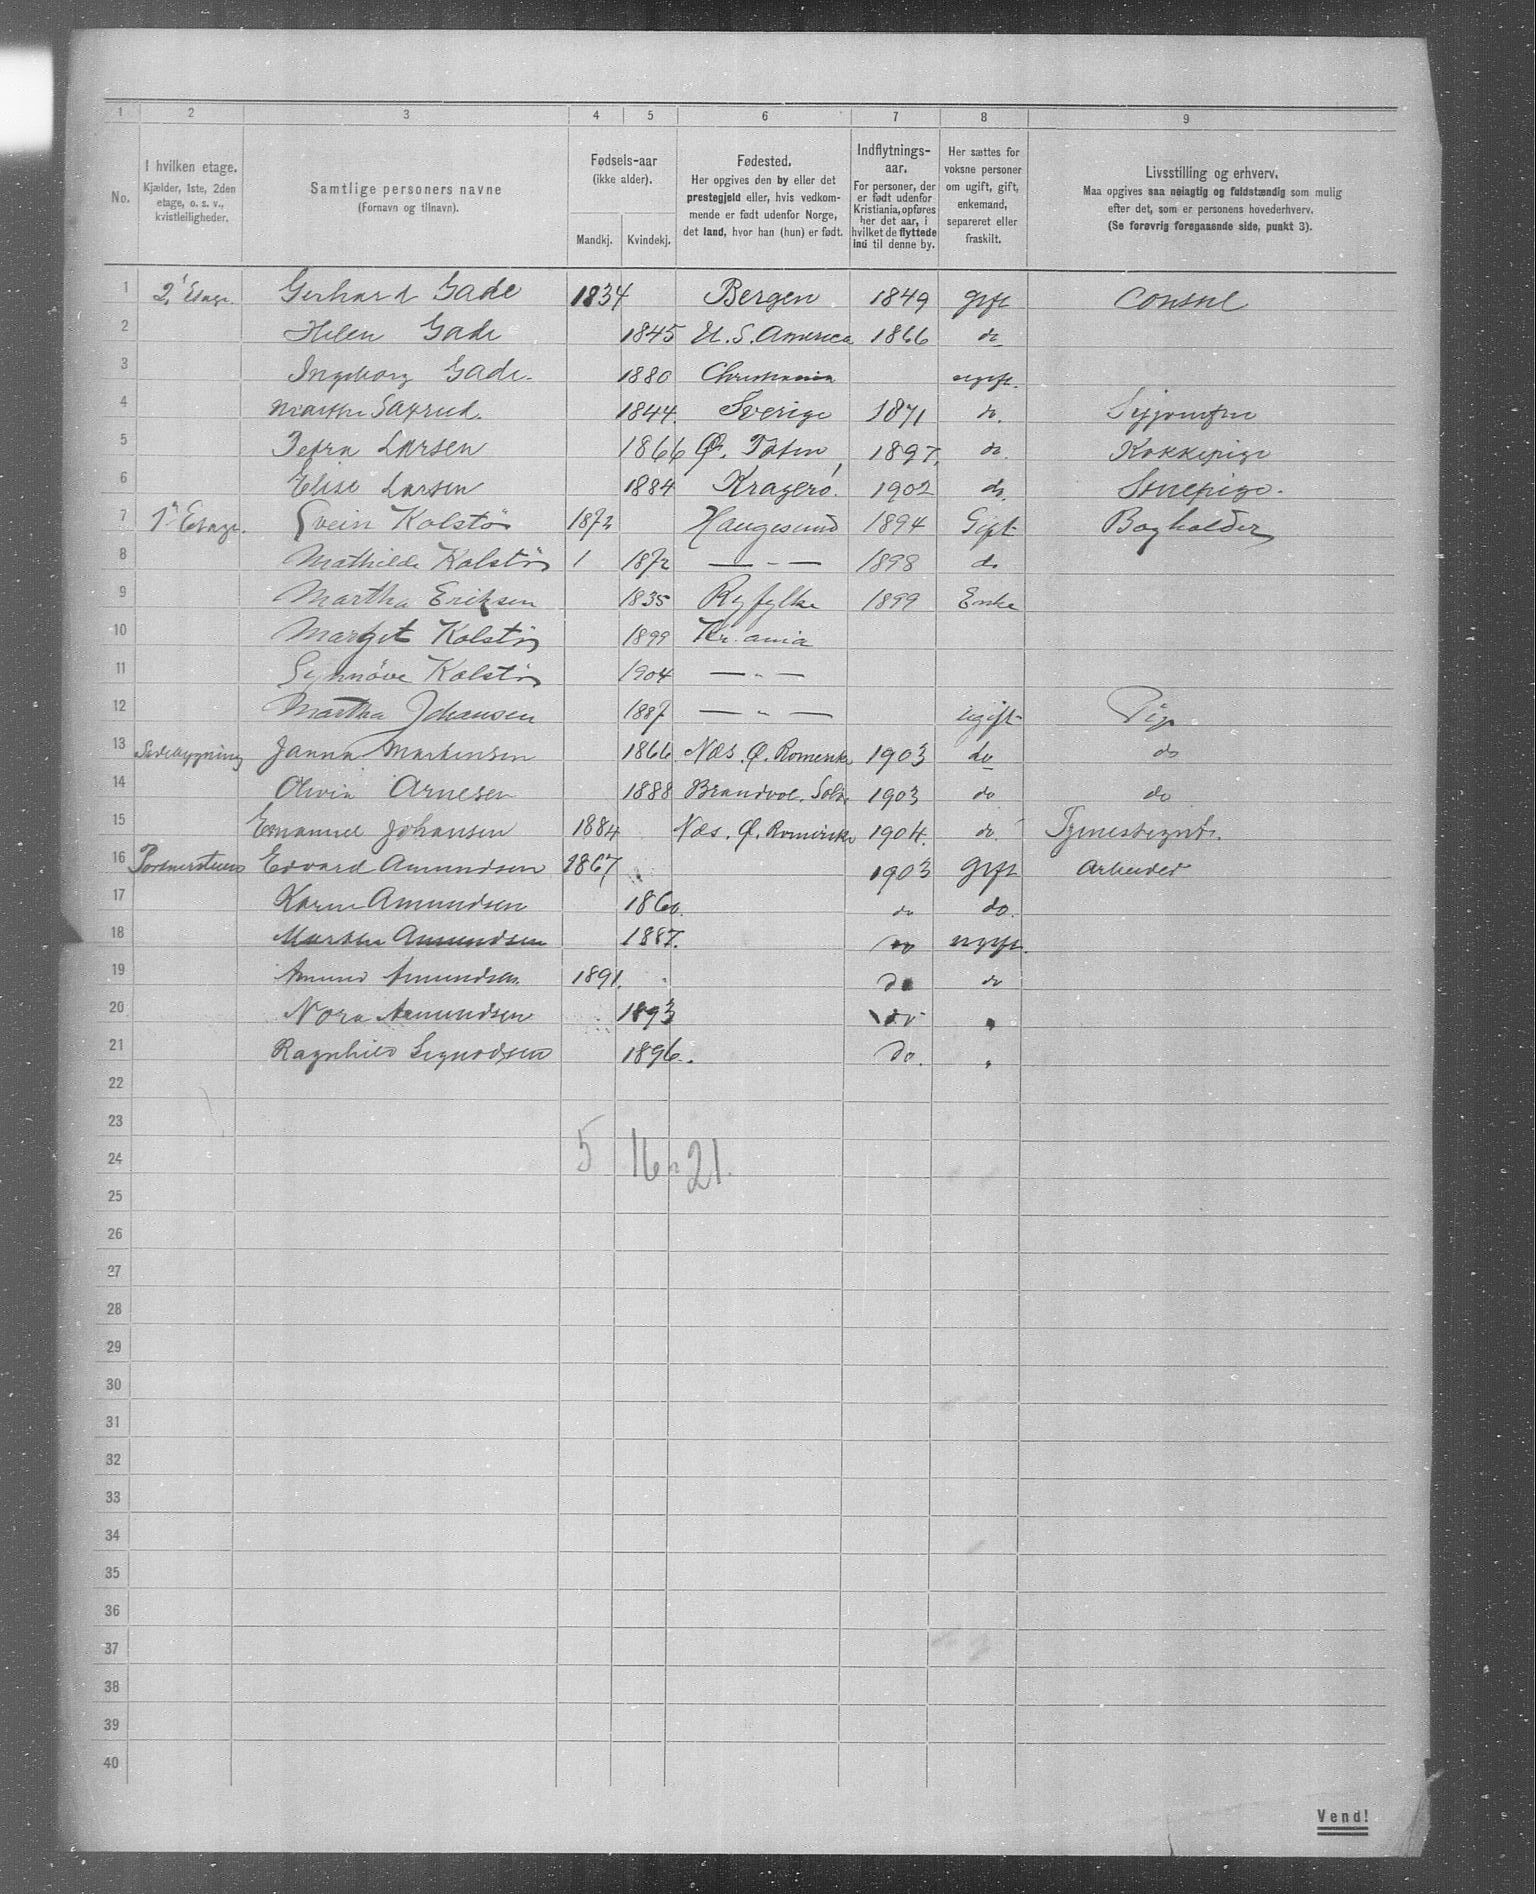 1 2 3 4 5 6 7 8 9
No. I hvilken etage. Kjælder, 1ste, 2den etage, o. s. v., kvistleiligheder. Samtlige personers navne (Fornavn og tilnavn). Fødsels-aar (ikke alder). Mandkj. Kvindekj. Fødested. Her opgives den by eller det prestegjeld eller, hvis vedkommende er født udenfor Norge, det land, hvor han (hun) er født. Indflytnings-aar. For personer, der er født udenfor Kristiania, opføres her det aar, i hvilket de flyttede ind til denne by. Her sættes for voksne personer om ugift, gift, enkemand, separeret eller fraskilt. Livsstilling og erhverv. Maa opgives saa nøiagtig og fuldstændig som mulig efter det, som er personens hovederhverv. (Se forøvrig foregaaende side, punkt 3).
1 2 Etage. Gerhard Gade 1834 Bergen 1849 gift Consul
2 Helen Gade 1845 U. S. America 1866 do
3 Ingeborg Gade. 1880 Christiania ugift.
4 Marthe 1844. Sverige 1871 do.
5 Petra Larsen 1866 Ø. Toten 1897. do. Kokkepige
6 Elise Larsen 1884 Kragerø. 1902 do. Stuepige.
7 1 Etage. Svein Kolstø 1872 Haugesund 1894 Gift Bogholder
8 Mathilde Kolstø 1 1872 — " — 1898 do
9 Martha Eriksen 1835 Ryfylke 1899 Enke
10 Margit Kolstø 1899 Kr.ania
11 Synnøve Kolstø 1904 — " —
12 Martha Johansen 1887 — " — ugift Pige
13 Sidebygning Janna Martinsen 1866 Næs. Ø. Romerike 1903 do do
14 Olivia Arnesen 1888 Brandvol. Solør 1903 do do
15 Emanuel Johansen 1884 Næs. Ø. Romerike 1904. do.
16 Portnerstuen Edvard Amundsen 1867 1903 gift Arbeider
17 Karen Amundsen 1860. do do.
18 Marthe Amundsen 1887. do ugift.
19 Amund Amundsen 1891. do do
20 Nora Amundsen 1893 do "
21 Ragnhild Sigurdsen 1896. do. "
22
23
24 5 16 = 21.
25
26
27
28
29
30
31
32
33
34
35
36
37
38
39
40
Vend!